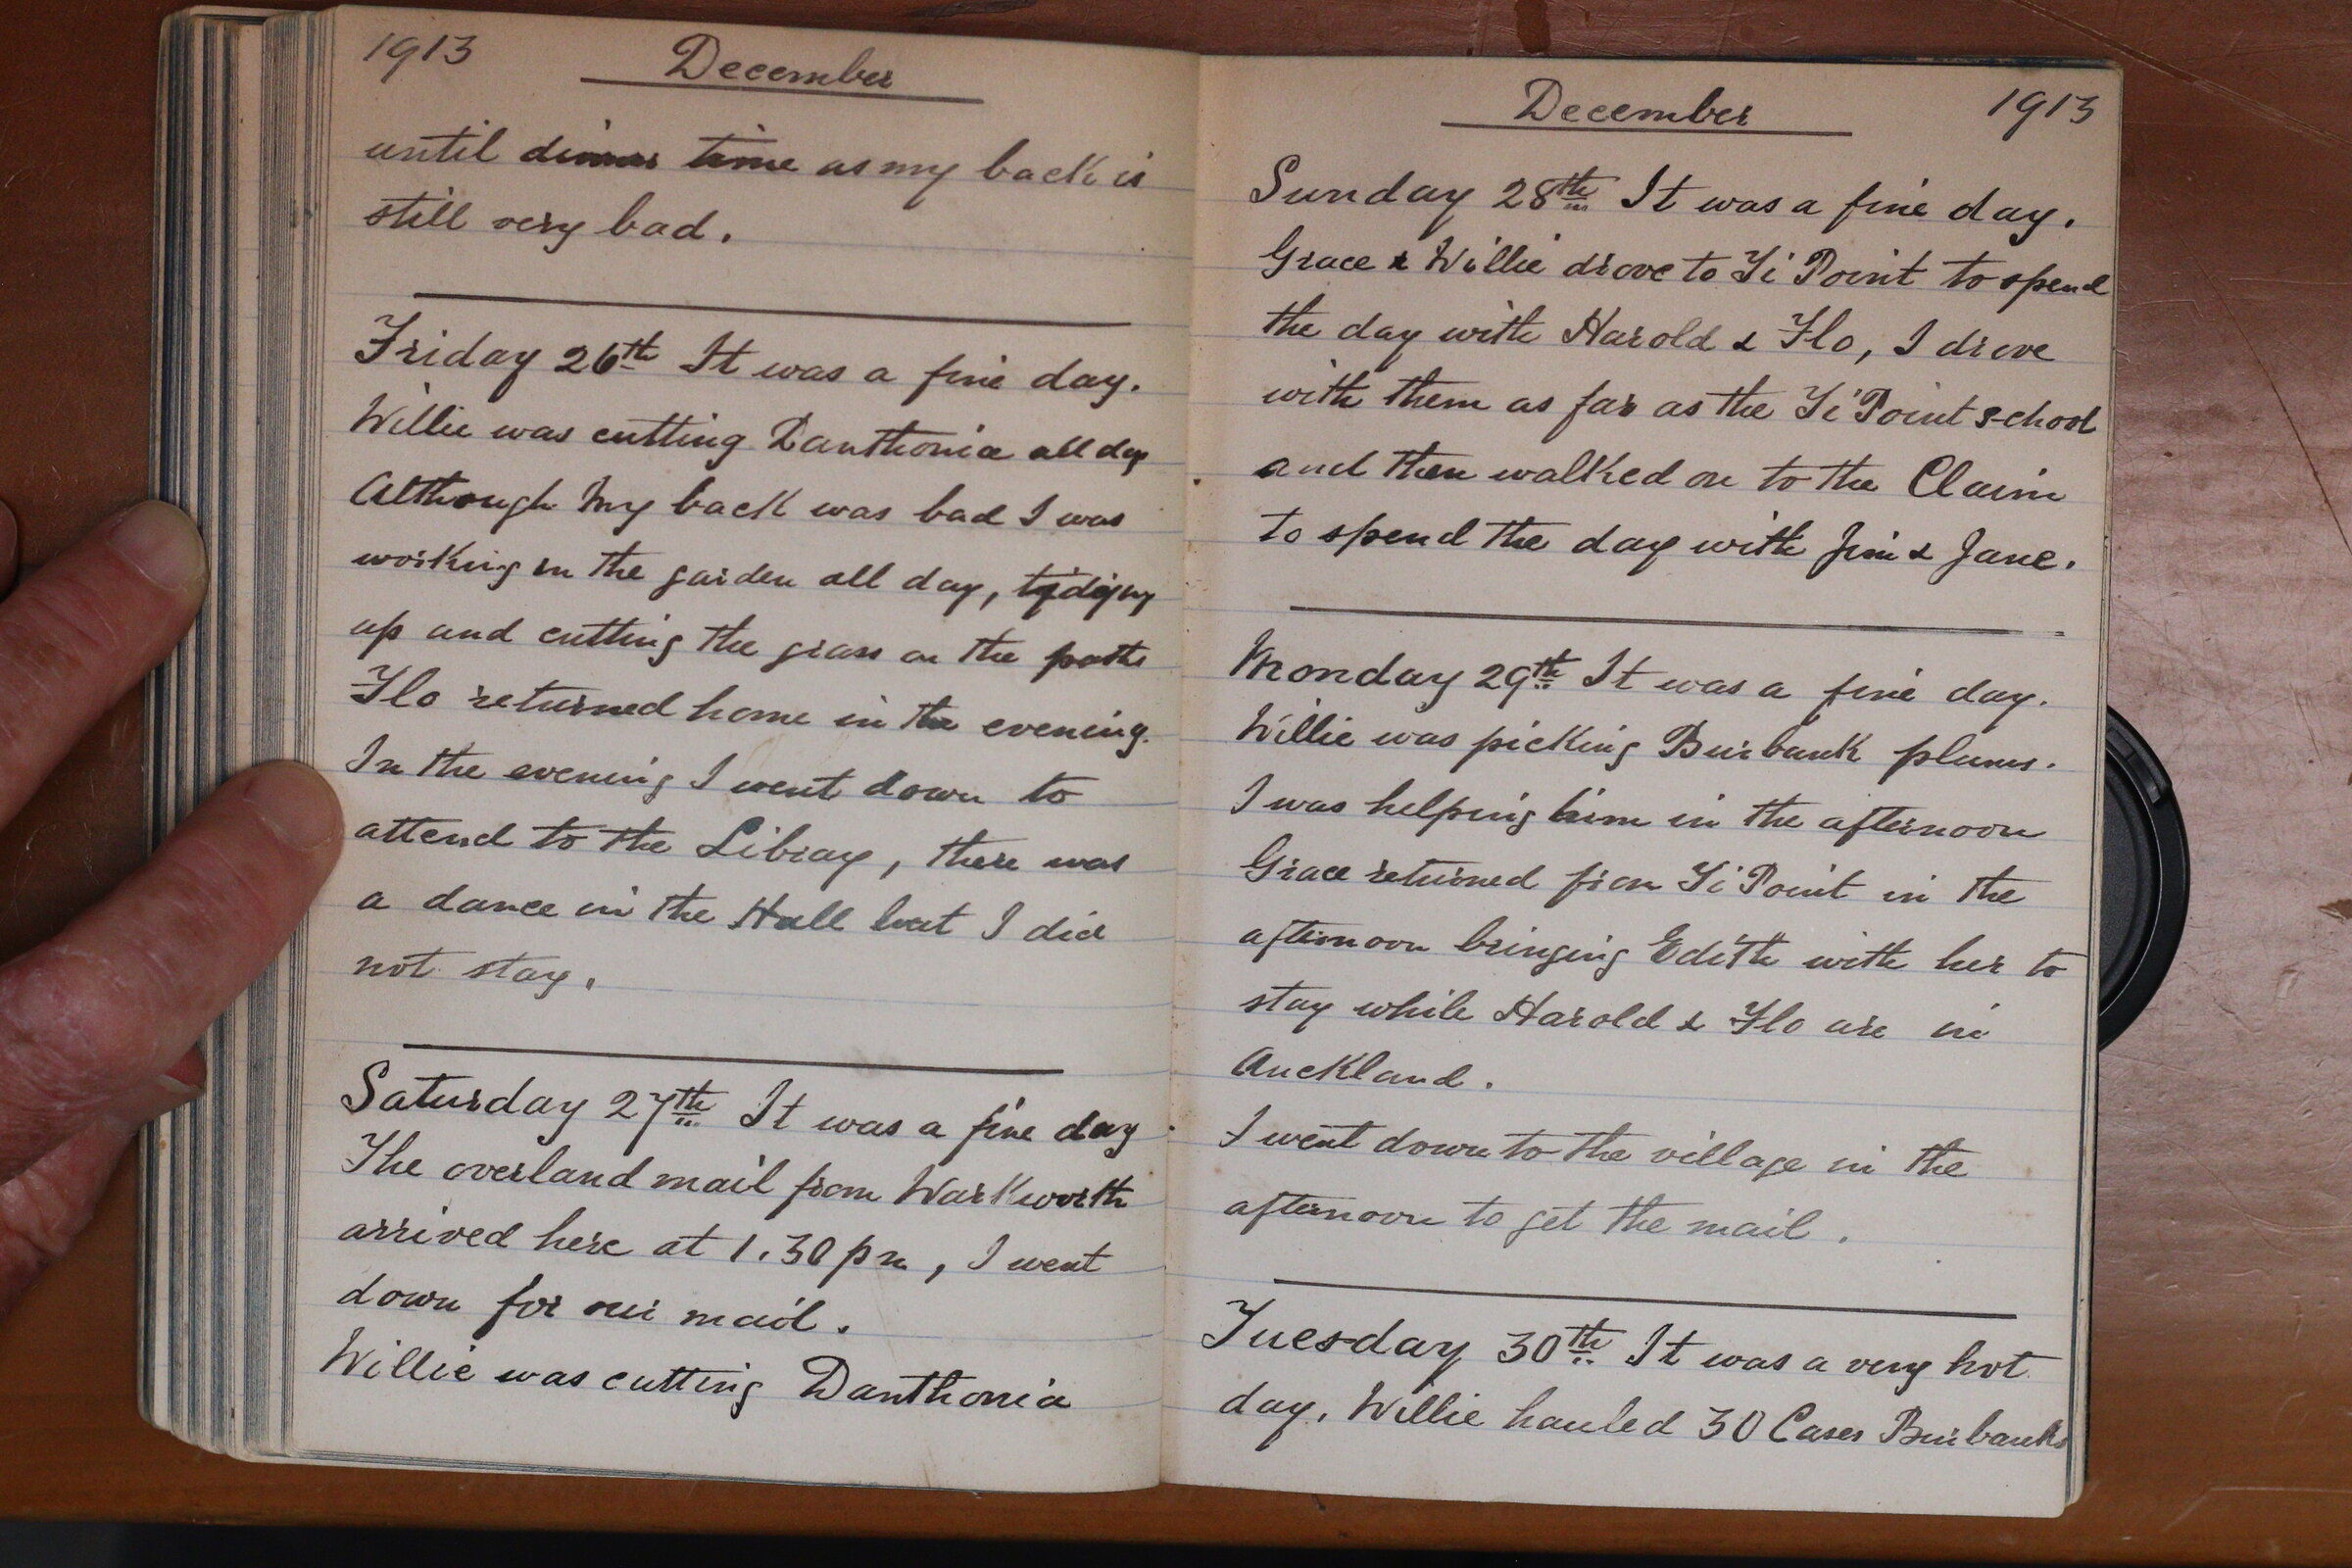 1913
December
until dinner time as my back is
still very bad.
Friday 26th It was a fine day.
Willie was cutting Danthonia all day
Although my back was bad I was
working in the garden all day, tydigny
up and cutting the grass on the paths
Flo returned home in the evening.
In the evening I went down to
attend to the Libray, there was
a dance in the Hall but I did
not stay.
Saturday 27th It was a fine day
The overland mail from Warkworth
arrived here at 1.30 pm, I went
down for our mail.
Willie was cutting Danthonia
December
1913
Sunday 28th It was a fine day.
Grace & Willie drove to Ti Point to spend
the day with Harold & Flo, I drove
with them as far as the Ti Point School
and then walked on to the Claim
to spend the day with Jim & Jane.
Monday 29th It was a fine day.
Willie was picking Burbank plums.
I was helping him in the afternoon
Grace returned from Ti Point in the
afternoon bringing Edith with her to
stay while Harold & Flo are in
Auckland.
I went down to the village in the
afternoon to get the mail.
Tuesday 30th It was a very hot
day, Willie hauled 30 Cases Burbanks